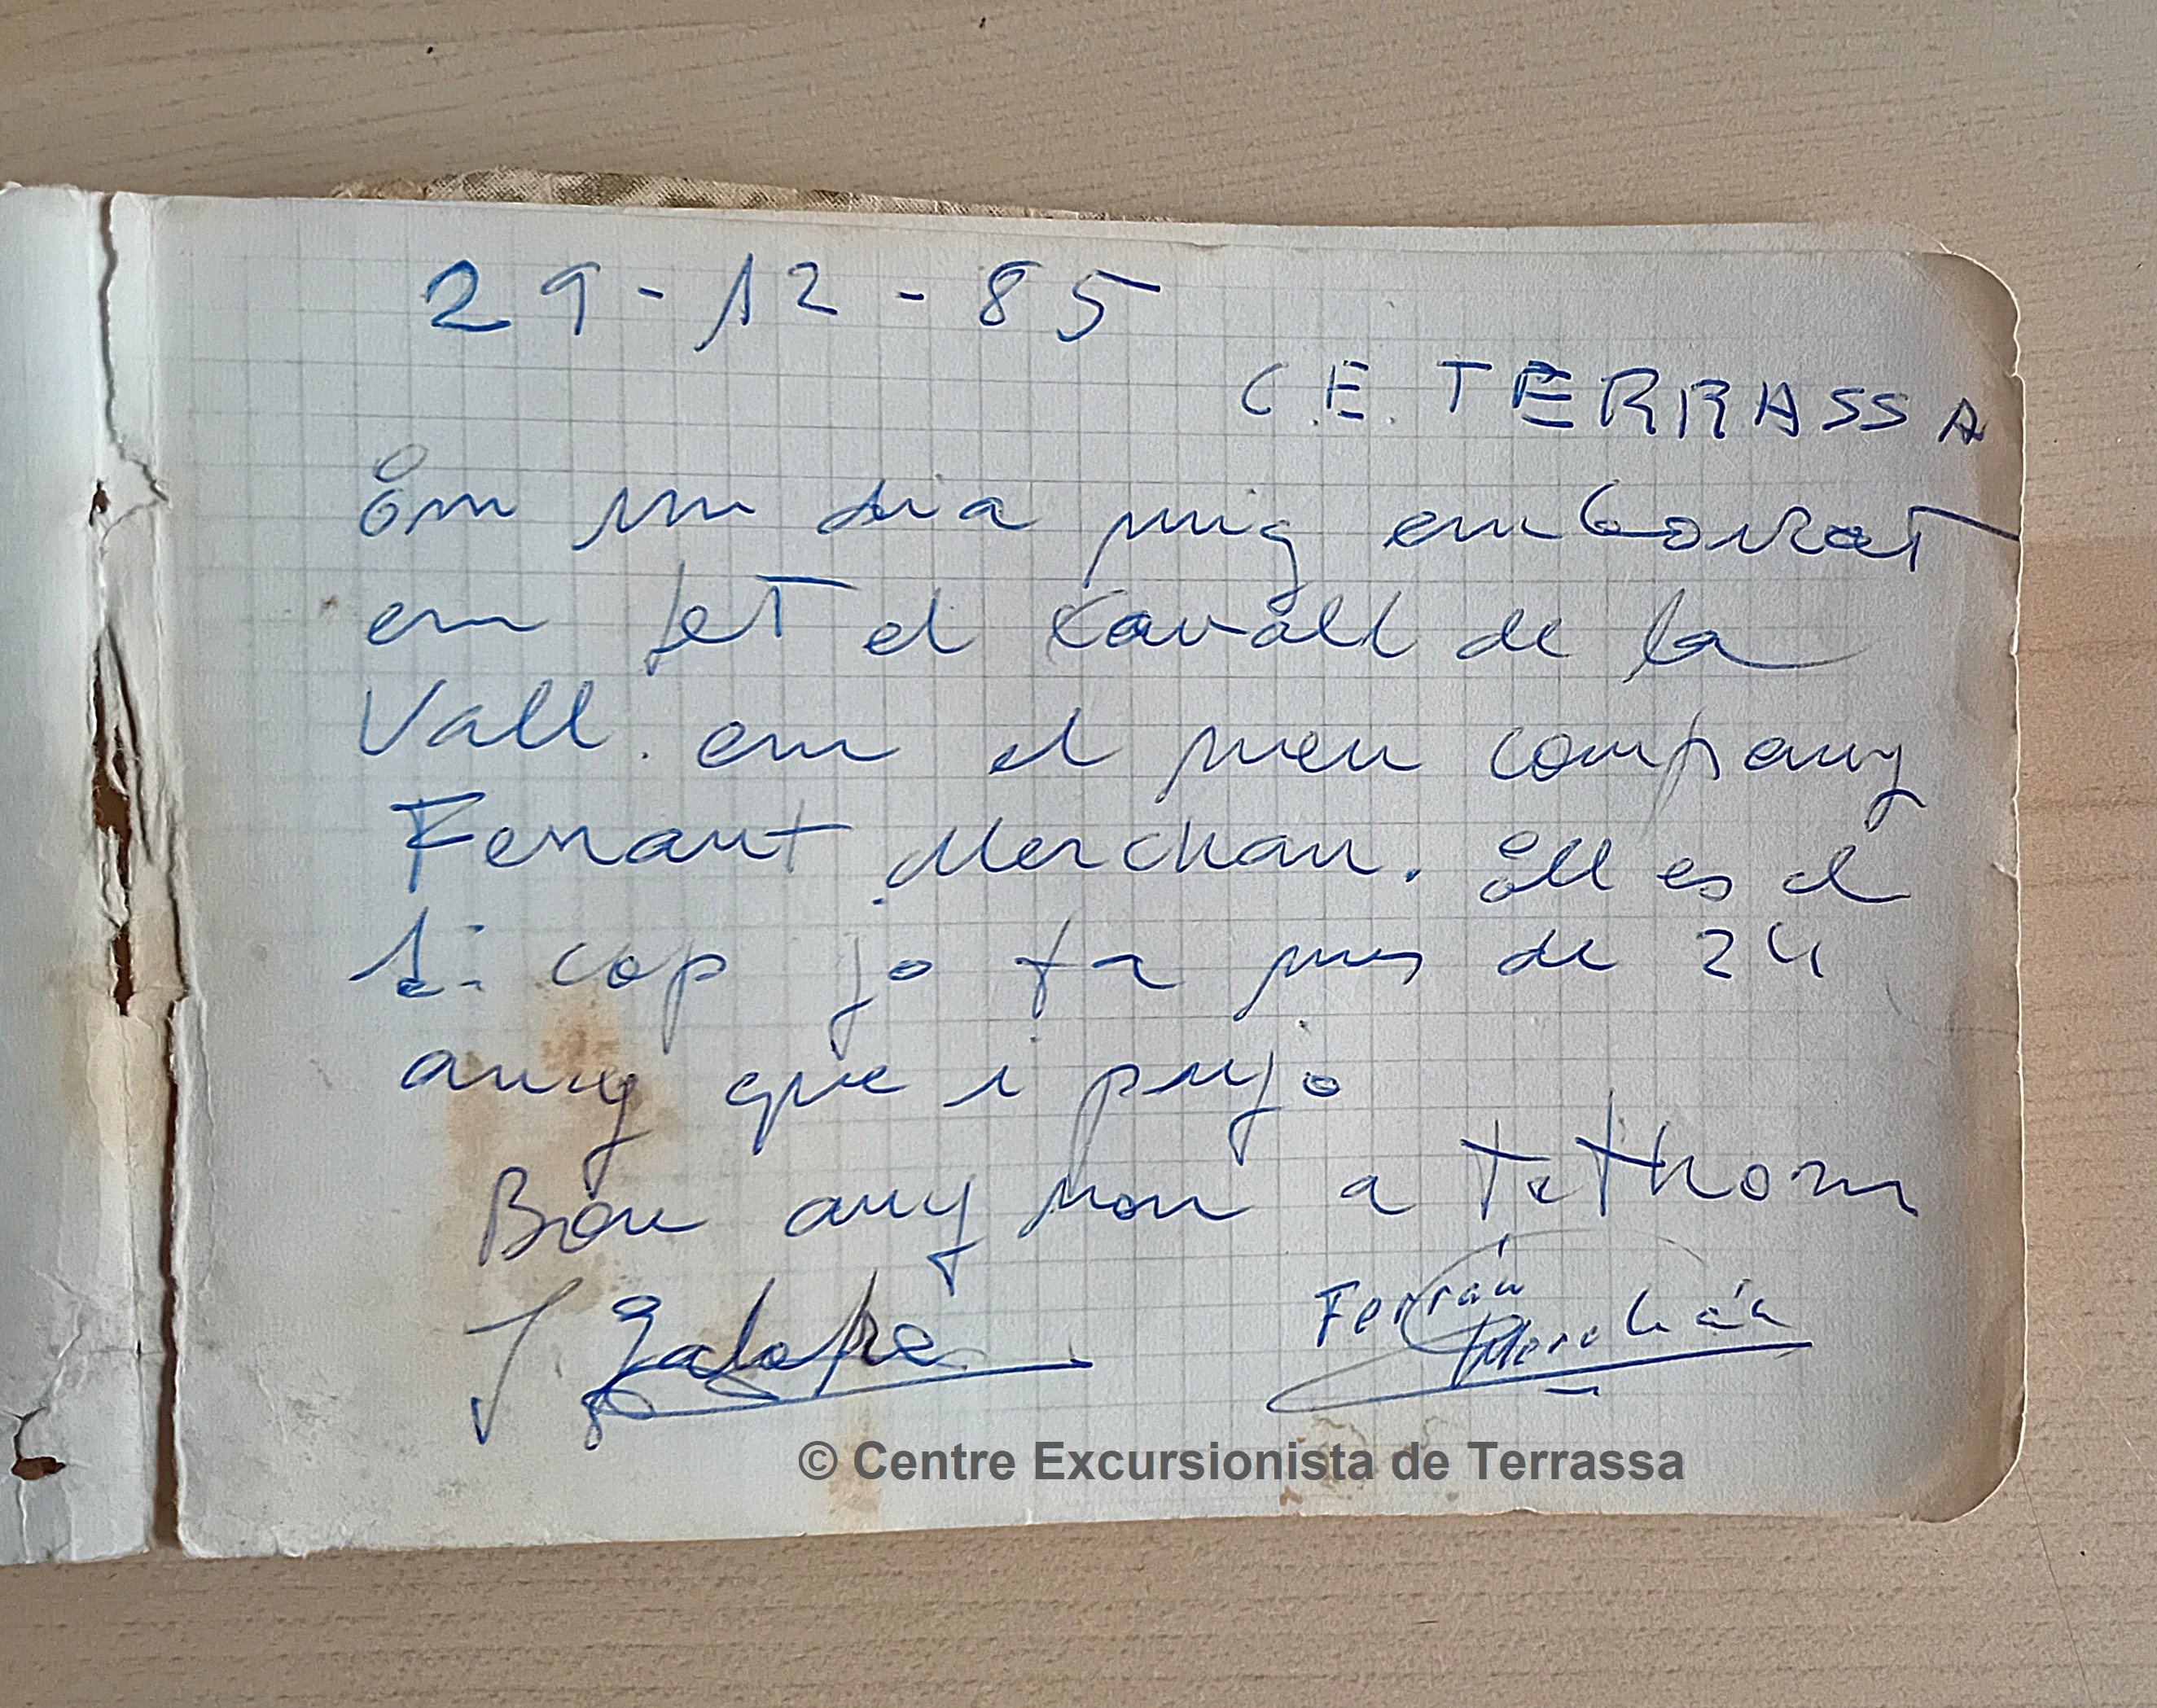 29-12-85
C.E. TERRASSA
Em un dia mig emborrat
em fet el Cavall de la
Vall. em el meu company
Ferrant Merchan. Ell es el
1è: cop jo fa mes de 24
any que i pujo
Bon any nou a tothom
J. Galofre
Ferrán Merchán
© Centre Excursionista de Terrassa